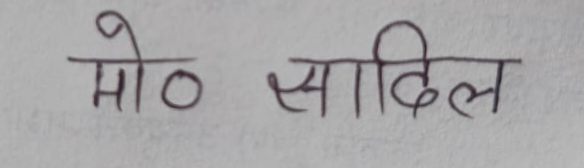 मो० सादिल